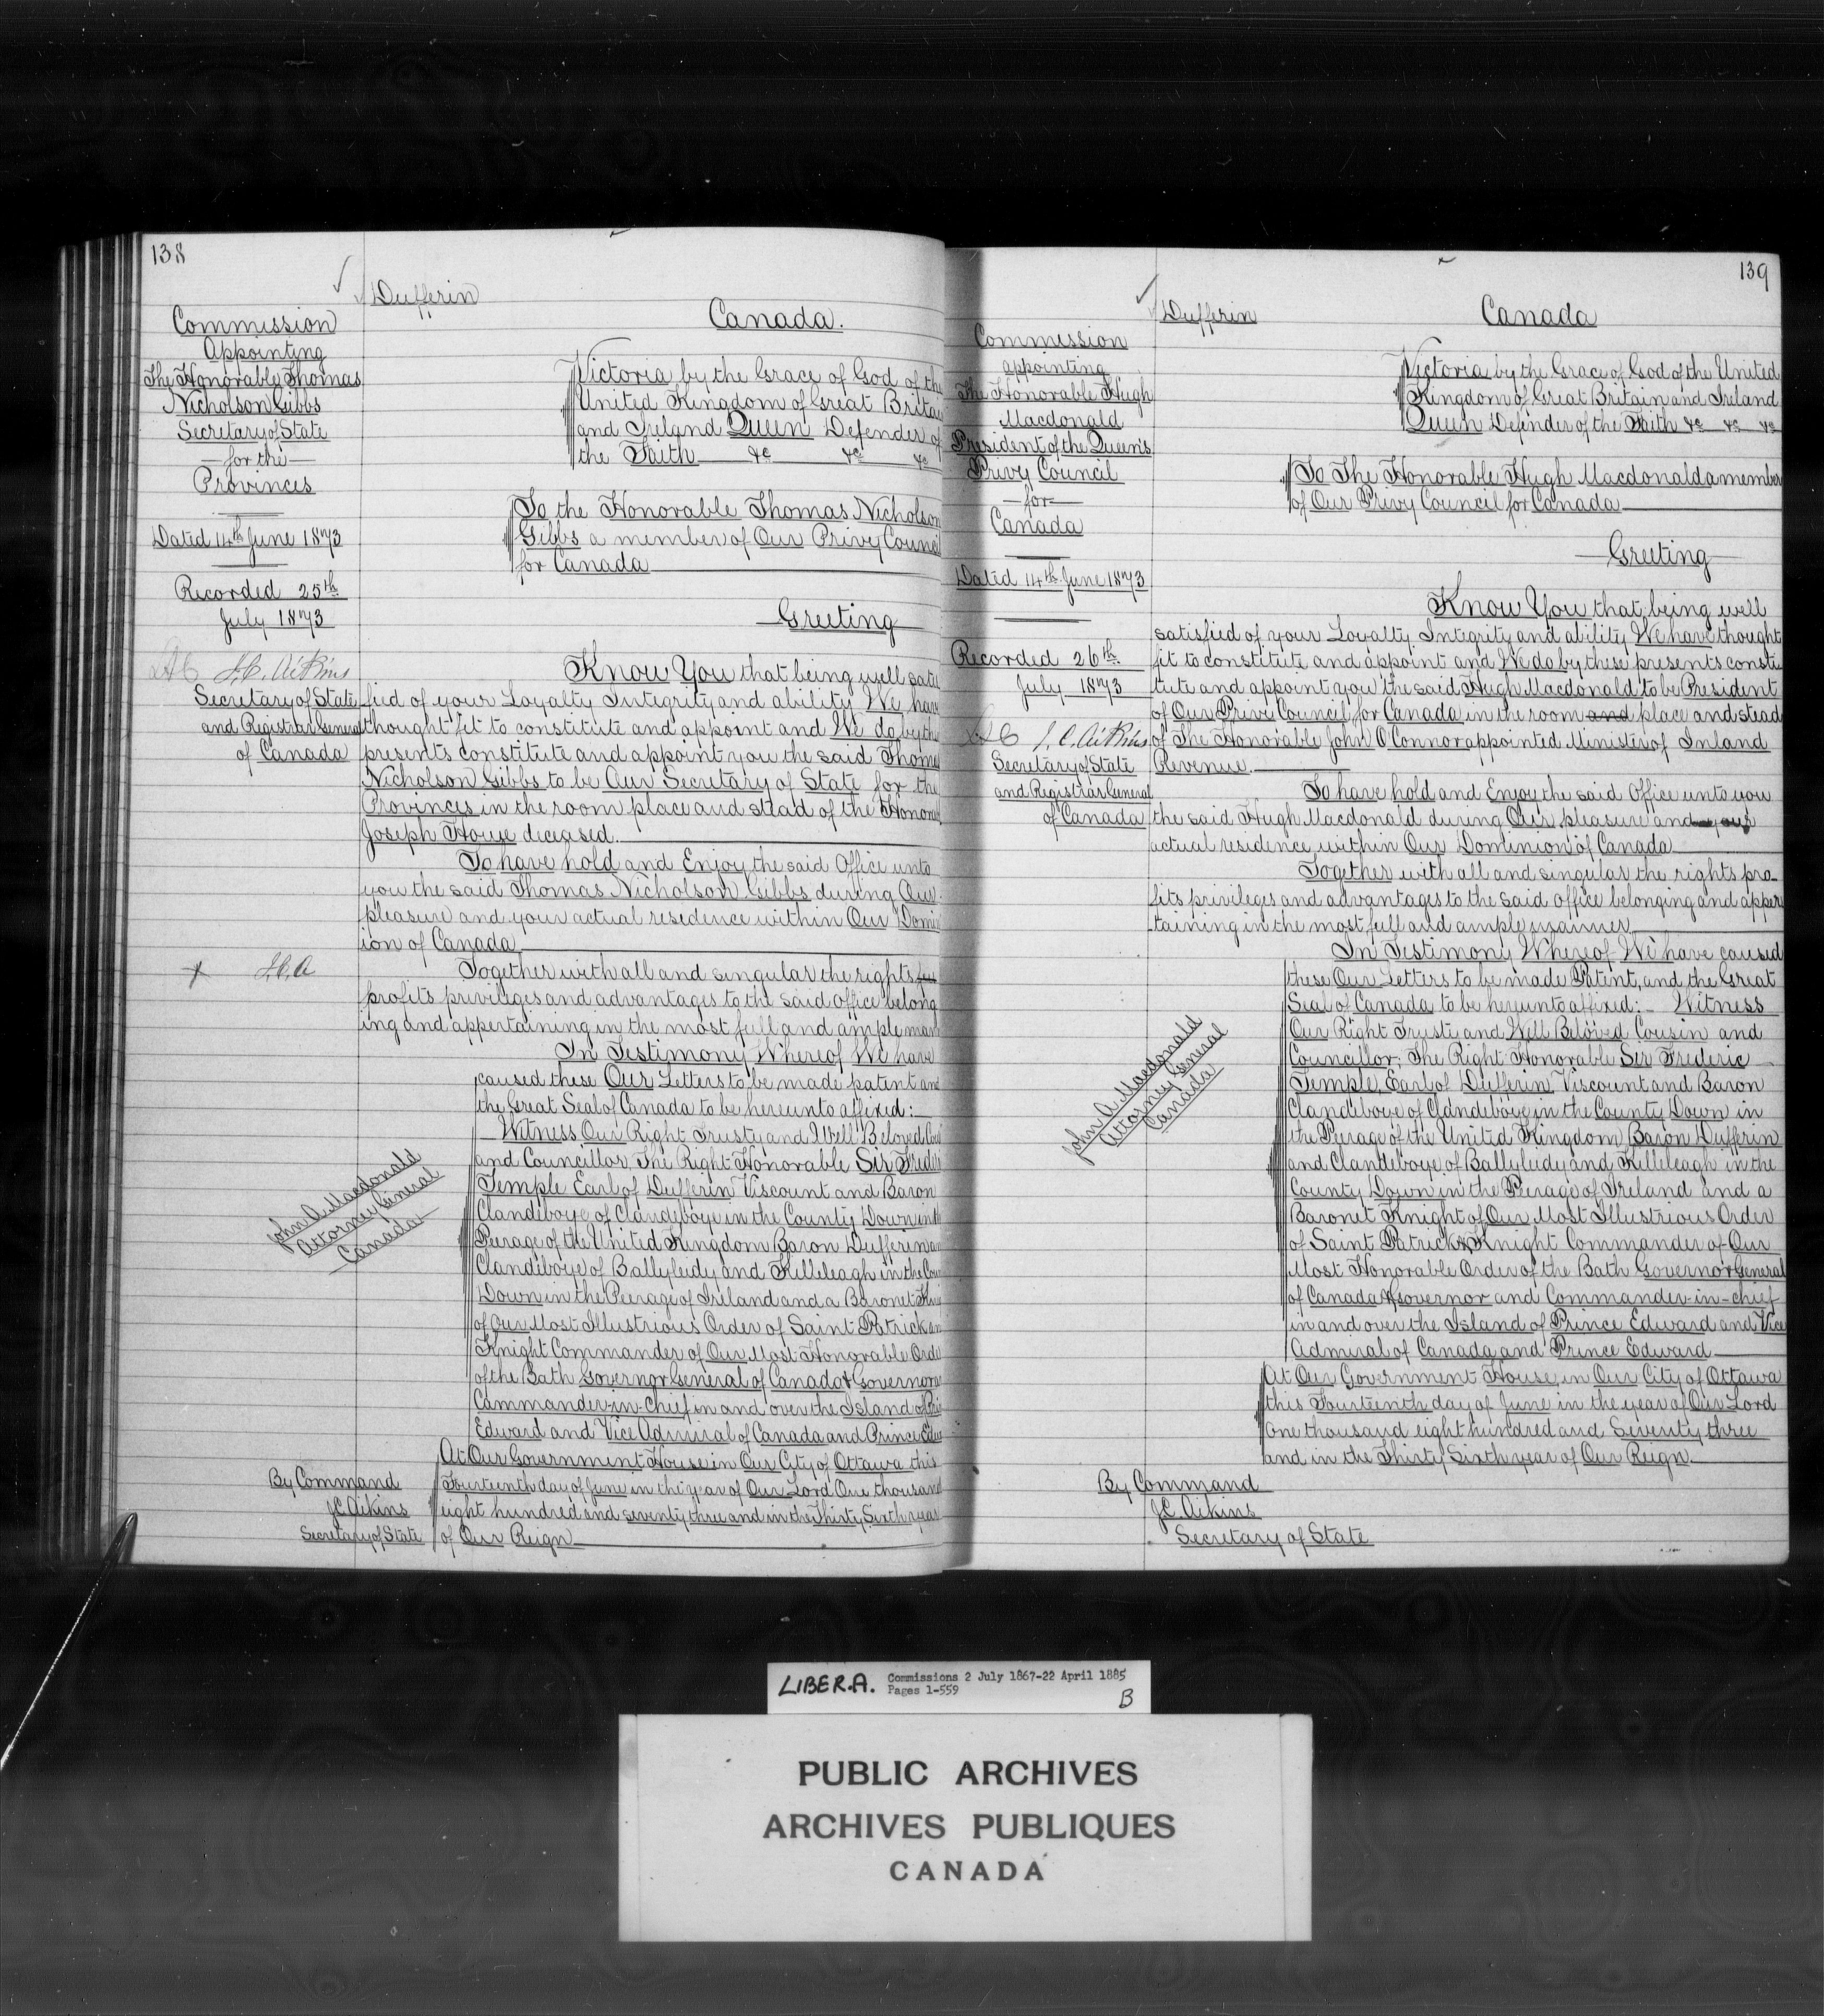 138
Dufferin
Canada.
Commission
Appointing
The Honorable Thomas
Nicholson Gibbs
Secretary of State
for the
Provinces
Dated 14th June 1873
Recorded 25th
July 1873
J.C. Aikins
Secretary of State
and Registrar General
of Canada
Victoria by the Grace of God of the
United Kingdom of Great Britain
and Ireland Queen Defender of
the Faith &c &c &c
To the Honorable Thomas Nicholson
Gibbs a member of Our Privy Council
for Canada
Greeting
Know You that being well satis
fied of your Loyalty Integrity and ability We have
thought fit to constitute and appoint and We do by the
presents constitute and appoint you the said Thomas
Nicholson Gibbs to be Our Secretary of State for the
Provinces in the room place and stead of the Honora
Joseph Howe deceased.
To have hold and Enjoy the said Office unto
you the said Thomas Nicholson Gibbs during Our
pleasure and your actual residence within Our Domin
ion of Canada
J.C.A
Together with all and singular the rights
profits privileges and advantages to the said office belong
ing and appertaining in the most full and ample man
In Testimony Whereof We have
caused these Our Letters to be made patent and
the Great Seal of Canada to be hereunto affixed:
Witness Our Right Trusty and Well Beloved Cou
and Councillor, The Right Honorable Sir Frederi
Temple Earl of Dufferin Viscount and Baron
Clandeboye of Clandeboye in the County Down in the
Peerage of the United Kingdom Baron Dufferin an
Clandeboye of Ballyleidy and Killeleagh in the Coun
Down in the Peerage of Ireland and a Baronet Kni
of Our Most Illustrious Order of Saint Patrick an
Knight Commander of Our Most Honorable Orde
of the Bath Governor General of Canada & Governor a
Commander-in-Chief in and over the Island of Pri
Edward and Vice Admiral of Canada and Prince Edw
At Our Government House in Our City of Ottawa this
Fourteenth day of June in the year of Our Lord One thousand
eight hundred and seventy three and in the Thirty Sixth year
of Our Reign
John A. Macdonald
Attorney General
Canada
By Command
J.C. Aikins
Secretary of State
139
Dufferin
Canada
Commission
appointing
The Honorable Hugh
Macdonald
President of the Queen's
Privy Council
for
Canada
Dated 14th June 1873
Recorded 26th
July 1873
J.C. Aikins
Secretary of State
and Registrar General
of Canada
Victoria by the Grace of God of the United
Kingdom of Great Britain and Ireland
Queen Defender of the Faith &c &c &c
To The Honorable Hugh Macdonald a member
of Our Privy Council for Canada
Greeting
Know You that being well
satisfied of your Loyalty Integrity and ability We have thought
fit to constitute and appoint and We do by these presents consti
tute and appoint you the said Hugh Macdonald to be President
of Our Privy Council for Canada in the room and place and stead
of The Honorable John O'Connor appointed Minister of Inland
Revenue.
To have hold and Enjoy the said Office unto you
the said Hugh Macdonald during Our pleasure and your
actual residence within Our Dominion of Canada
Together with all and singular the rights pro-
fits privileges and advantages to the said office belonging and apper
taining in the most full and ample manner
In Testimony Whereof We have caused
these Our Letters to be made Patent, and the Great
Seal of Canada to be hereunto affixed:- Witness
Our Right Trusty and Well Beloved Cousin and
Councillor, The Right Honorable Sir Frederic
Temple, Earl of Dufferin Viscount and Baron
Clandeboye of Clandeboye in the County Down in
the Peerage of the United Kingdom, Baron Dufferin
and Clandeboye, of Ballyleidy and Killeleagh in the
County Down in the Peerage of Ireland and a
Baronet Knight of Our Most Illustrious Order
of Saint Patrick & Knight Commander of Our
Most Honorable Order of the Bath Governor General
of Canada & Governor and Commander-in-chief
in and over the Island of Prince Edward and Vice
Admiral of Canada and Prince Edward
At Our Government House, in Our City of Ottawa
this Fourteenth day of June in the year of Our Lord
One thousand eight hundred and Seventy three
and in the Thirty Sixth year of Our Reign.
John A. Macdonald
Attorney General
Canada
By Command
J.C. Aikins
Secretary of State
LIBER.A. Commissions 2 July 1867-22 April 1885
Pages 1-559
B
PUBLIC ARCHIVES
ARCHIVES PUBLIQUES
CANADA